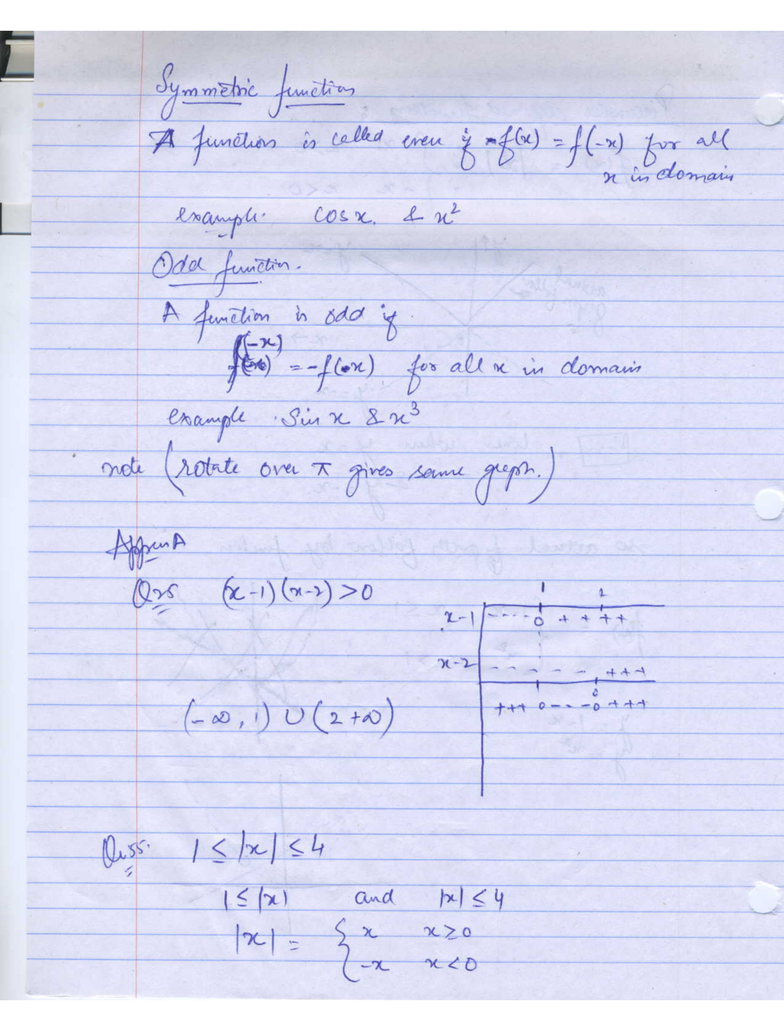 Symmetric function
A function is called even if f(x) = f(-x) for all
x in domain
example. cos x. & x²
Odd function.
A function is odd if
f(-x) = -f(x) for all x in domain
example . Sin x & x³
note (rotate over π gives same graph.)
Appen A
Q25 (x-1)(x-2) > 0
1 2
x-1 - - - - 0 + + + +
x-2 - - - - - - + + +
0
+++ 0 - - - 0 + + +
(-∞, 1) ∪ (2 +∞)
Qu 55. 1 ≤ |x| ≤ 4
1 ≤ |x| and |x| ≤ 4
|x| = { x x ≥ 0
-x x < 0